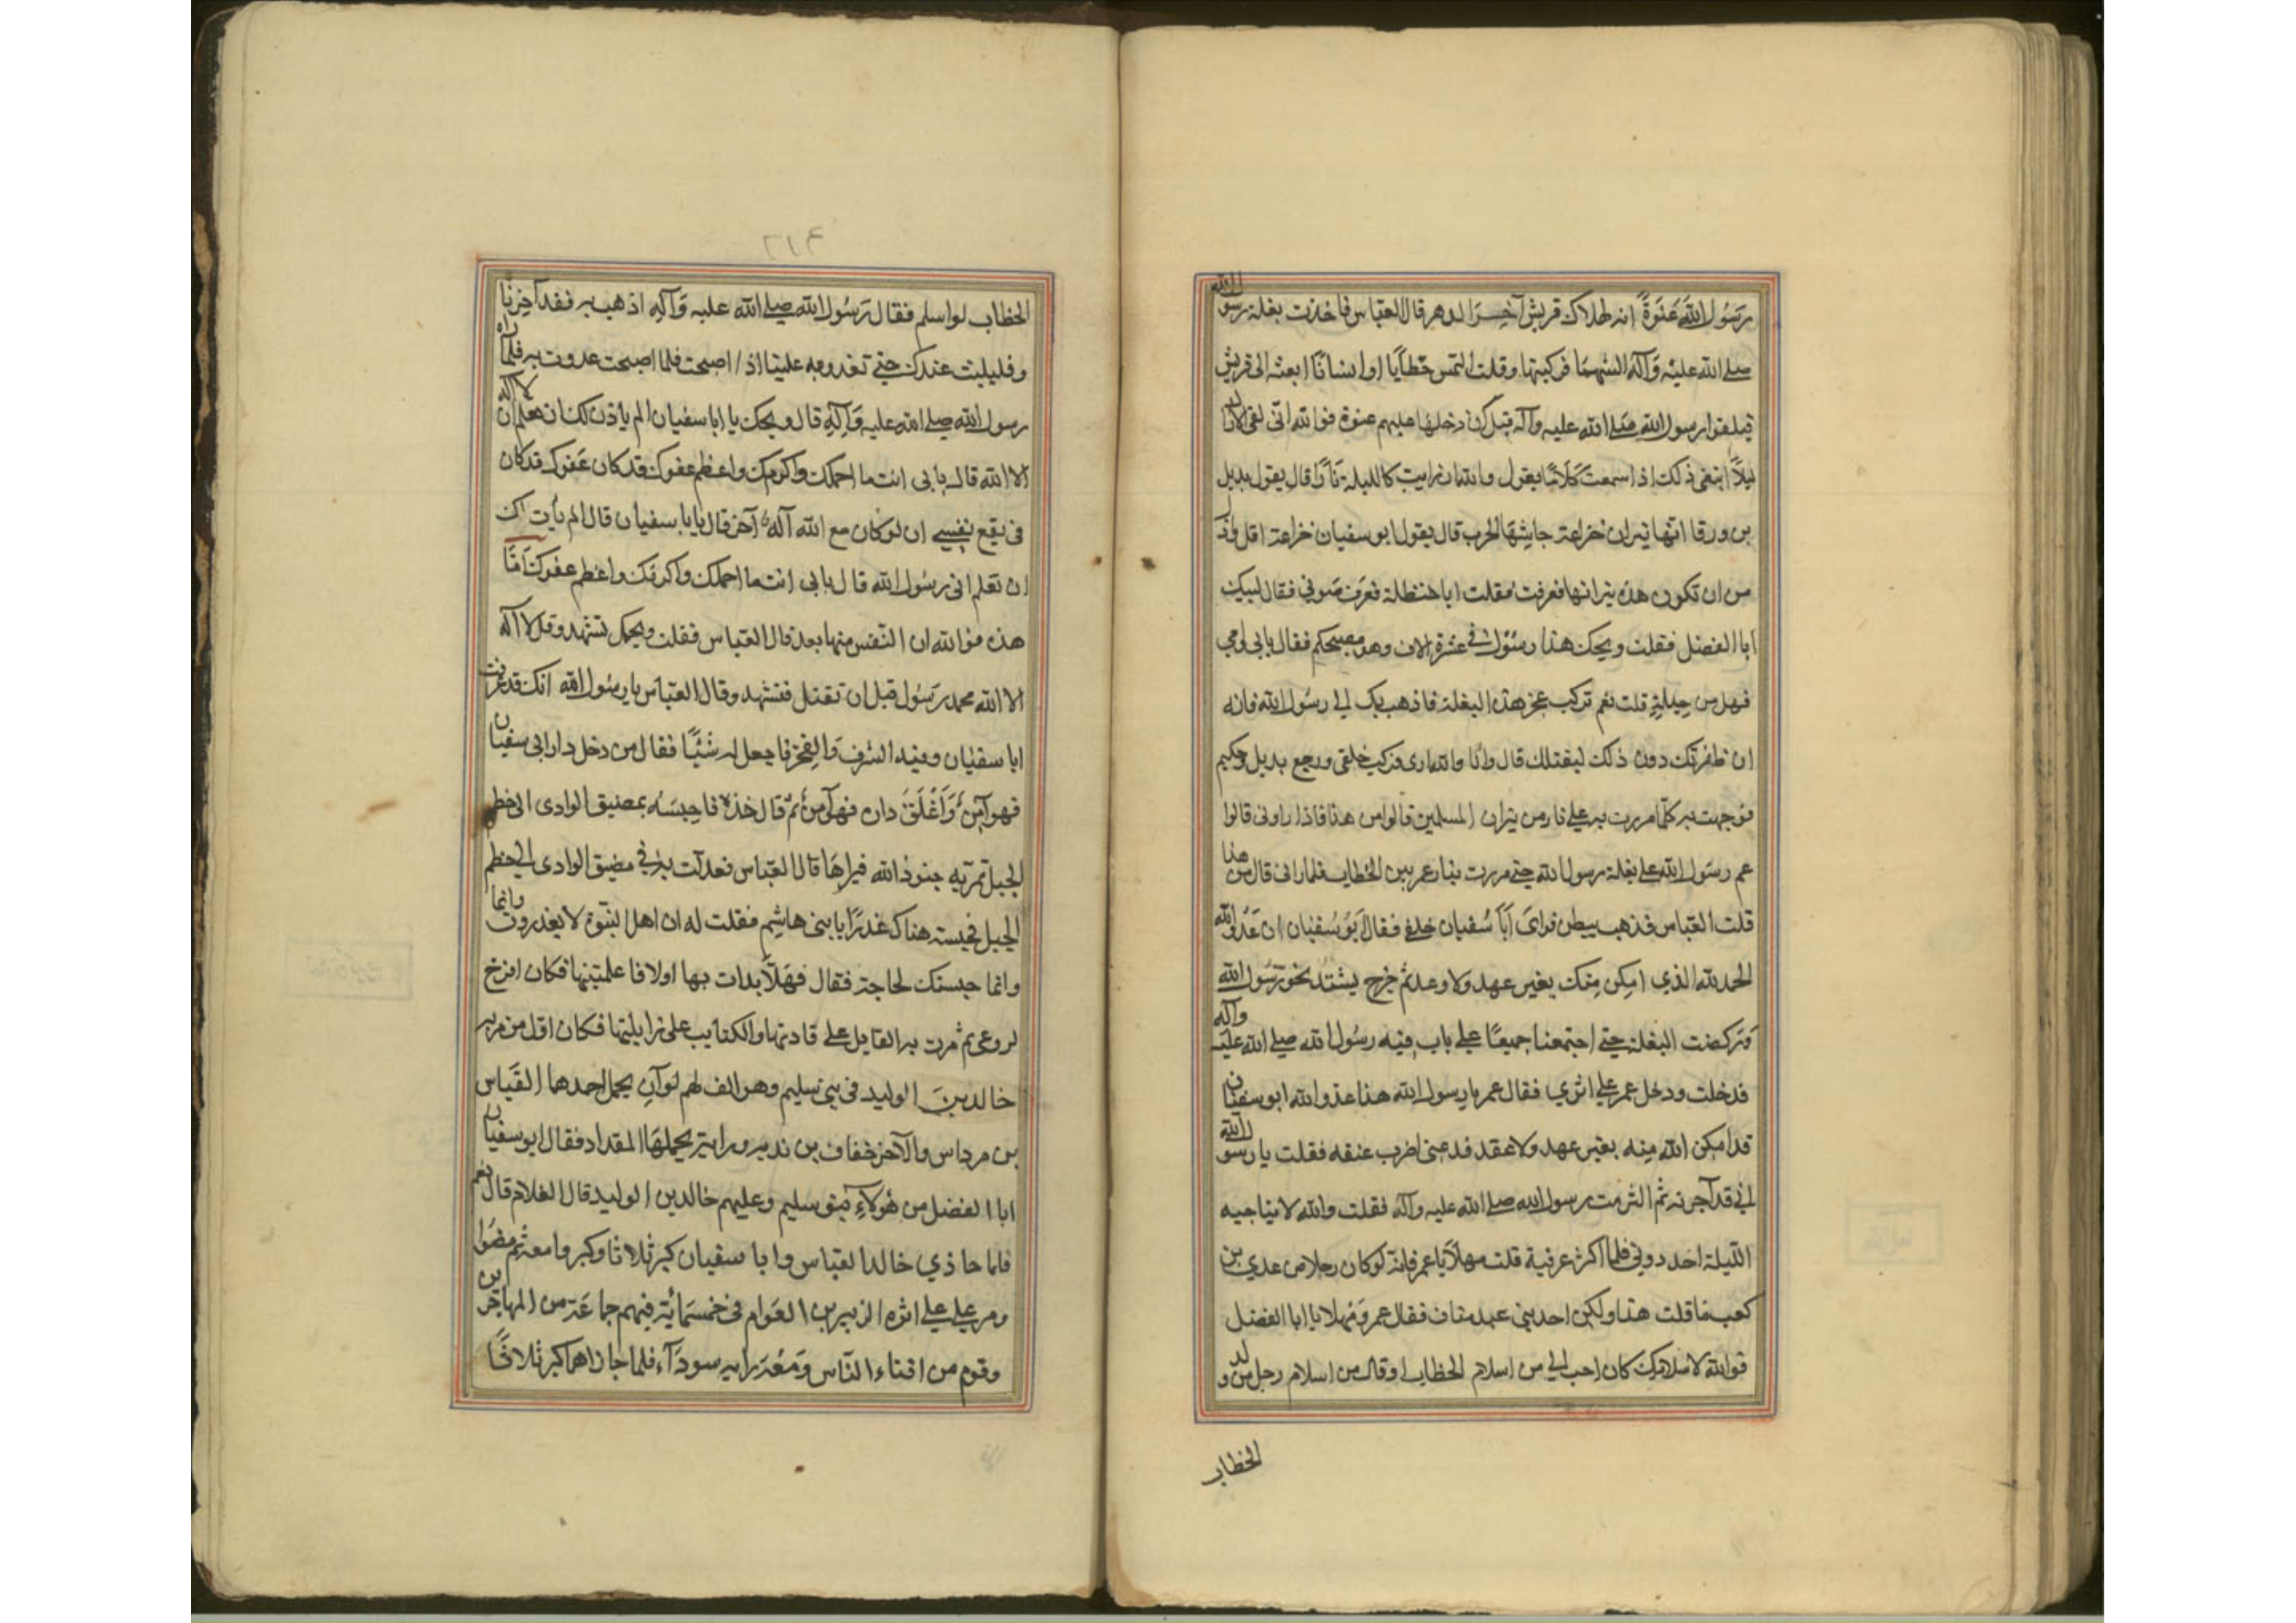 رسول الله عنوة انه لهلاك قريش آخر الدهر قال العباس فاخذت بغلة رسول الله
صلى الله عليه وآله الشهباء فركبتها وقلت التمس خطابا او انسانا ابعثه الى قريش
رسول الله صلى الله عليه وآله قبل ان دخلها عليهم عنوة فوالله انى لفى الاراك
ليلا ابتغى ذلك اذا سمعت كلاما يقول والله ان رايت كالليلة نارا قال يقول بديل
بن ورقا انها نيران خزاعة جاشها الحرب قال يقول ابو سفيان خزاعة اقل واذل
من ان تكون هذه نيرانها فعرفت فقلت ابا حنظلة فعرف صوتى فقال لبيك
ابا الفضل فقلت ويحك هذا رسول فى عشرة الاف وهو مصبحكم فقال بابى وامى
فهل من حيلة قلت نعم تركب عجز هذه البغلة فاذهب بك الى رسول الله فانه
ان ظفر بك دون ذلك ليقتلك قال وانا والله ارى فركب خلفى ورجع بديل وحكيم
فتوجهت به كلما مررت به على نار من نيران المسلمين قالوا من هذا فاذا راونى قالوا
عم رسول الله على بغلة رسول الله حتى مررت بنار عمر بن الخطاب فلما رانى قال من هذا
قلت العباس فذهب ينظر فراى ابا سفيان خلفى فقال ابو سفيان ان عدو الله
الحمد لله الذي امكن منك بغير عهد ولا وعد ثم خرج يشتد نحو رسول الله
وركضت البغلة حتى اجتمعنا جميعا على باب فيه رسول الله صلى الله عليه وآله
فدخلت ودخل عمر على اثرى فقال عمر يا رسول الله هذا عدو الله ابو سفيان
قد امكن الله منه بغير عهد ولا عقد فدعنى اضرب عنقه فقلت يا رسول الله
انى قد آجرته ثم التزمت رسول الله صلى الله عليه وآله فقلت والله لا يناجيه
الليلة احد دونى فلما اكثر عمر فيه قلت مهلا يا عمر فانه لو كان رجلا من عدي بن
كعب ما قلت هذا ولكن احد بنى عبد مناف فقال عمر ومهلا يا ابا الفضل
فوالله لاسلامك كان احب الى من اسلام الخطاب او قال من اسلام رجل من ولد
الخطاب
الخطاب لو اسلم فقال رسول الله صلى الله عليه وآله اذهب به فقد آجرنا
وفليبت عندك حتى تغدو به علينا اذا اصبحت فلما اصبحت غدوت به فلما راه
رسول الله صلى الله عليه وآله قال ويحك يا ابا سفيان الم ياذن لك ان تعلم ان لا اله
الا الله قال بابى انت ما احلمك واكرمك واعظم عفوك قد كان عفوك قد كان
فى يقع نفسى ان لو كان مع الله آله آخر قال يابا سفيان قال الم يأت لك
ان تعلم انى رسول الله قال بابى انت ما احلمك واكرمك واعظم عفوك امّا
هذه فوالله ان النفس منها بعد قال العباس فقلت ويحك تشهد وقل لا آله
الا الله محمد رسول قبل ان تقتل فتشهد وقال العباس يا رسول الله انك قد عرفت
ابا سفيان وفيه الشرف والفخر فاجعل له شيئا فقال من دخل دار ابى سفيان
فهو آمن وَاَغْلَقَ داره فهو آمن ثم قال خذه فاحبسه بمضيق الوادى الى خطم
الجبل تمر به جنود الله فيراها قال العباس فعدلت به فى مضيق الوادى الى خطم
الجبل فحبسته هناك غدرا يا بنى هاشم فقلت له ان اهل النبوة لا يغدرون وانما
وانما حبستك لحاجة فقال فهلا بدات بها اولا فاعلمتنيها فكان افرخ
لروعى ثم مرت به القبايل على قادتها والكتايب على راياتها فكان اول من مر به
خالد بن الوليد فى بنى سليم وهو الف لهم لوآن يحمل احدهما العباس
بن مرداس والآخر خفاف بن ندبه وراية يحملها المقداد فقال ابو سفيان
ابا الفضل من هؤلاء بنو سليم وعليهم خالد بن الوليد قال الغلام قال نعم
فلما حاذي خالد العباس وابا سفيان كبر ثلاثا وكبروا معه ثم مضوا
ومر على على اثره الزبير بن العوام فى خمسمائة فيهم جماعة من المهاجرين
وقوم من افناء الناس ومعه راية سودآء فلما جازاهم اكبر ثلاثا